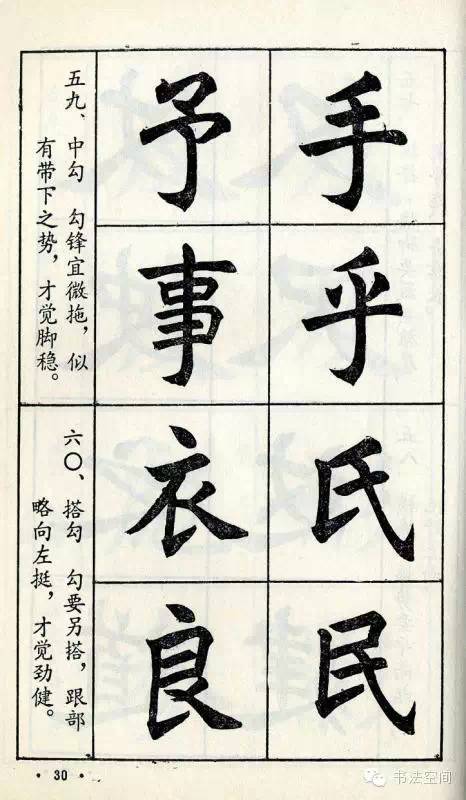 手乎
予事
五九、中勾 勾锋宜微拖，似
有带下之势，才觉脚稳。
氏民
衣良
六〇、搭勾 勾要另搭，跟部
略向左挺，才觉劲健。
· 30 ·
书法空间